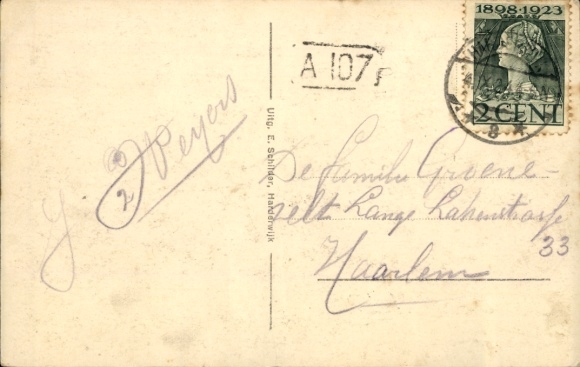 1898·1923
2 CENT
8
A 107
J. Weyers
2
Uitg. E. Schilder, Harderwijk
De familie Groene-
velt Lange Lakenstraat
33
Haarlem